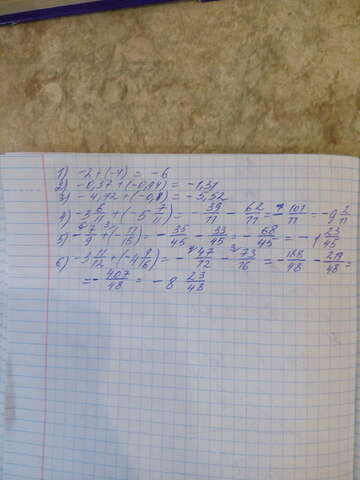 1) -2+(-4) = -6
2) -0,37+(-0,94) = -1,31
3) -4,72+(-0,8) = -5,52
4) -3 6/11 + (-5 7/11) = - 39/11 - 62/11 = - 101/11 = -9 2/11
5) - 7/9 + (- 11/15) = - 35/45 - 33/45 = - 68/45 = -1 23/45
6) -3 11/12 + (-4 9/16) = - 47/12 - 73/16 = - 188/48 - 219/48 =
= - 407/48 = -8 23/48